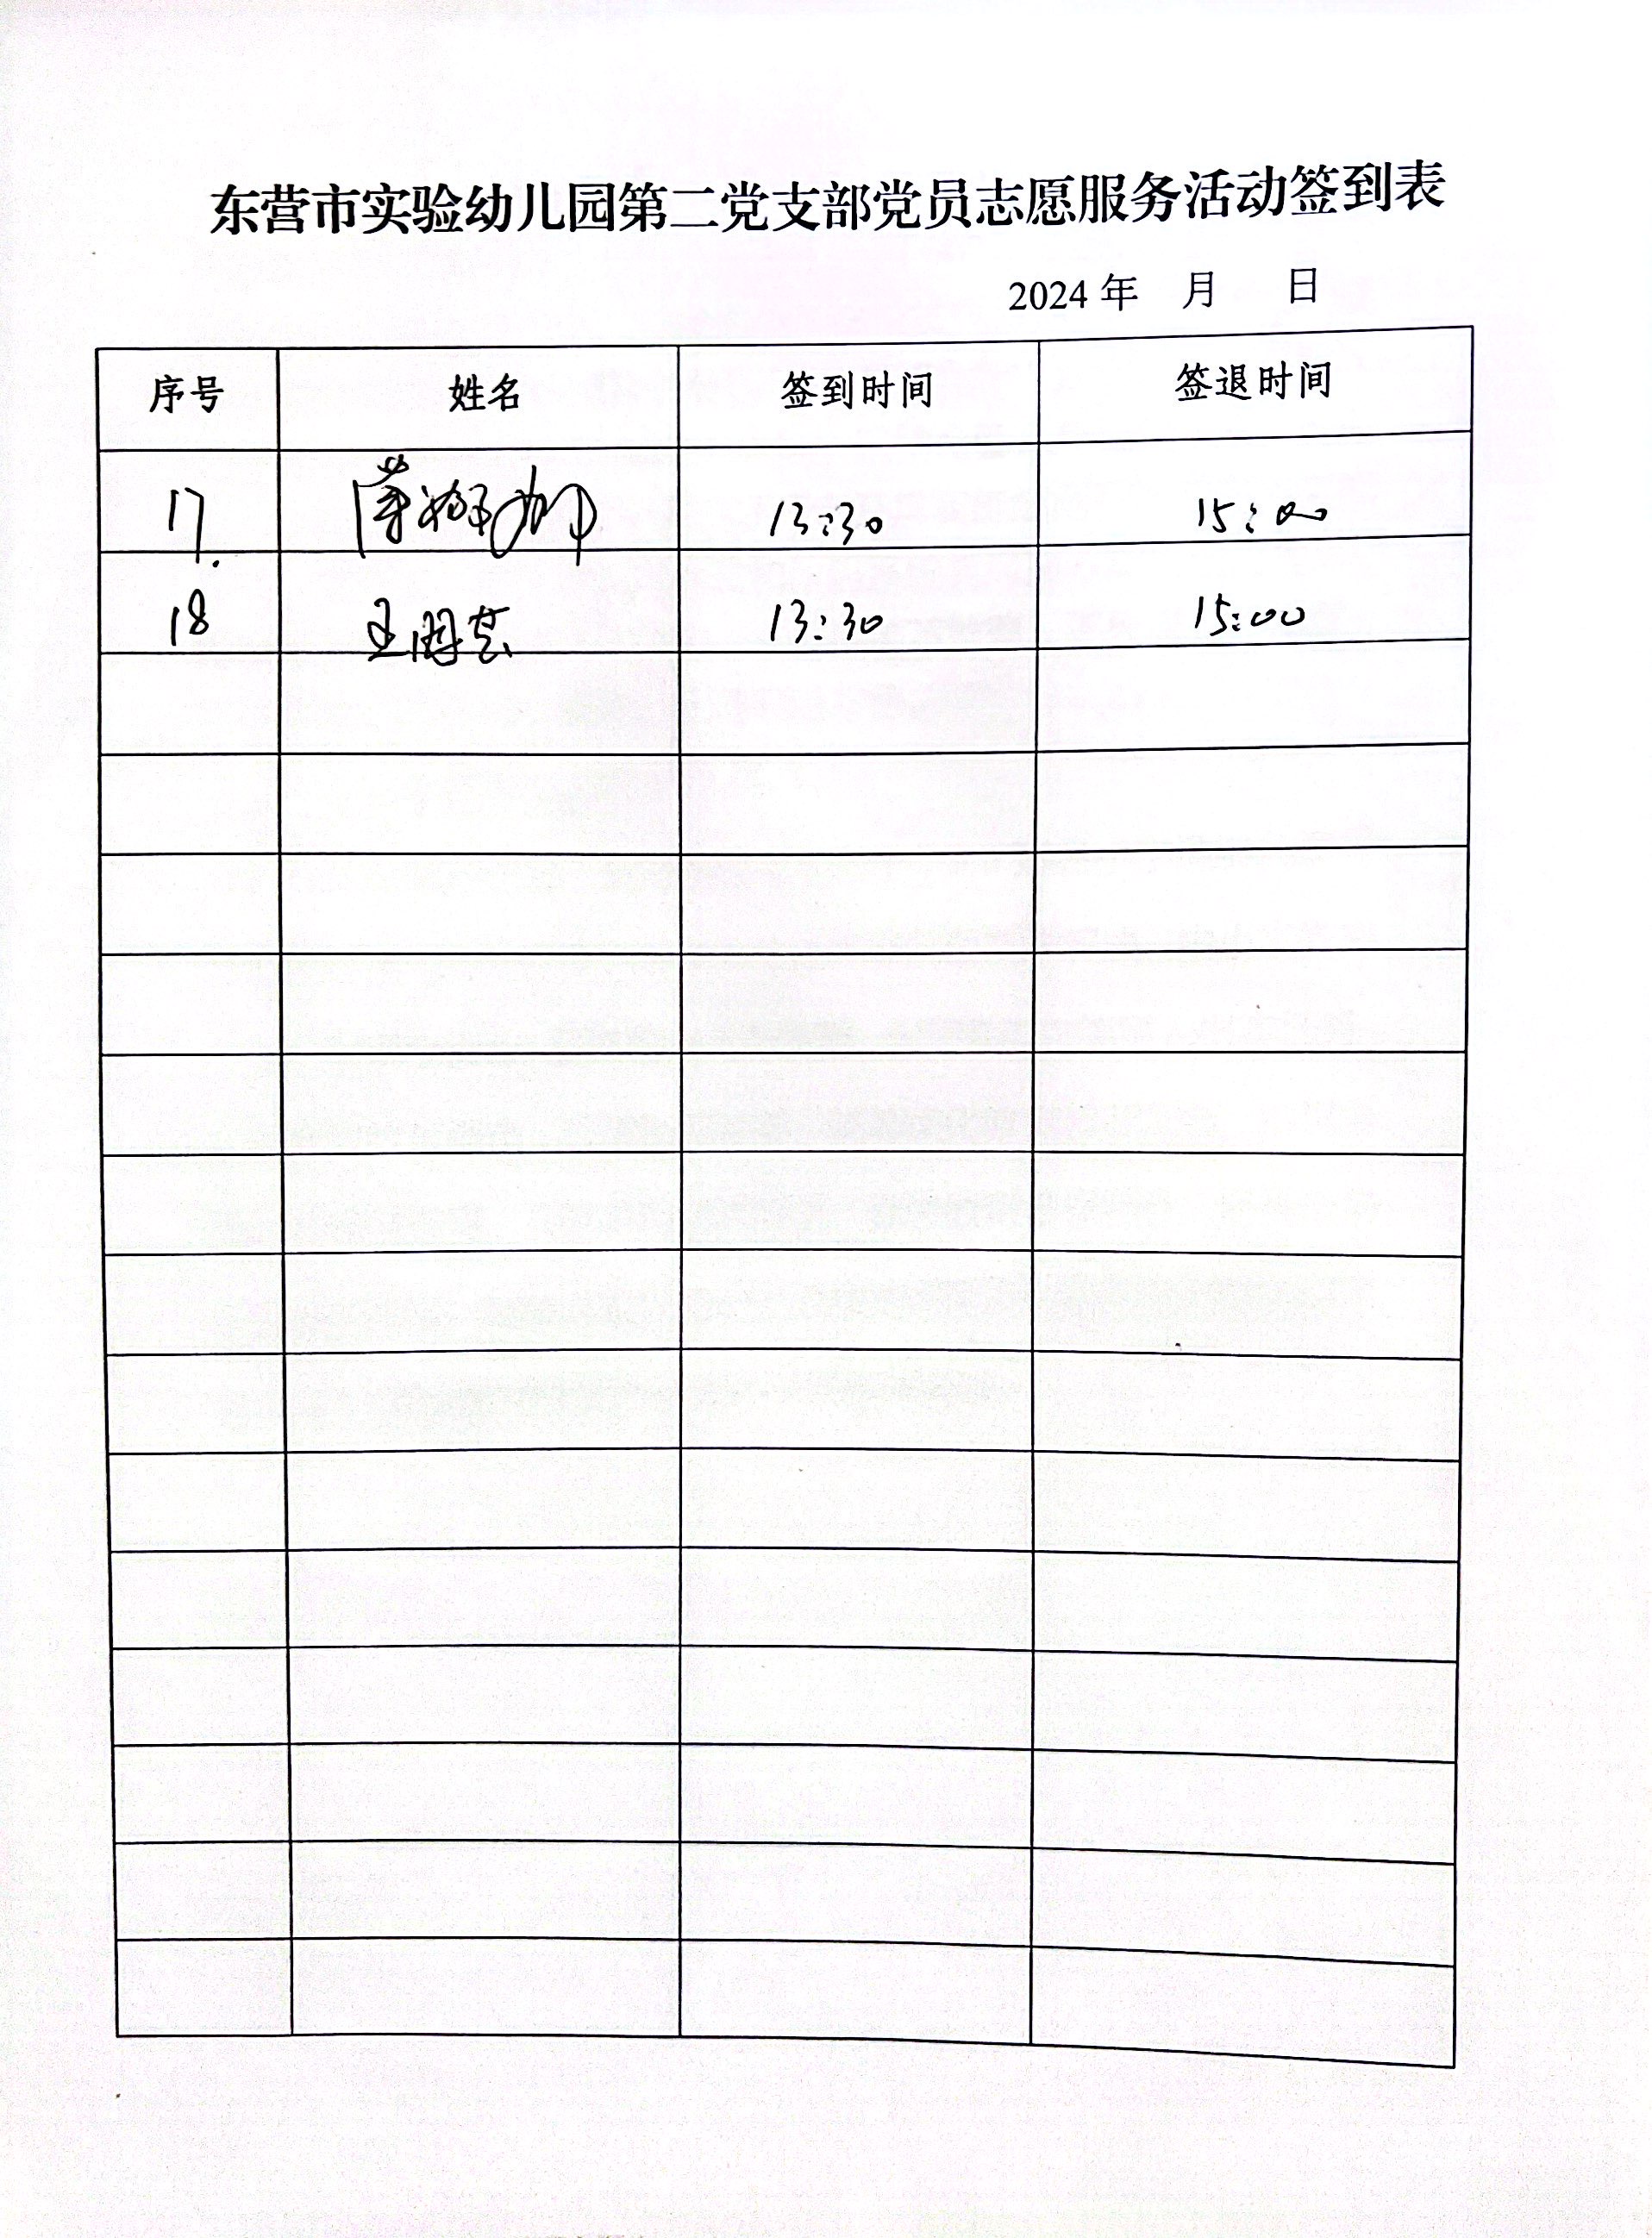 东营市实验幼儿园第二党支部党员志愿服务活动签到表
2024 年 月 日
序号 姓名 签到时间 签退时间
17. 13:30 15:00
18 王 13:30 15:00